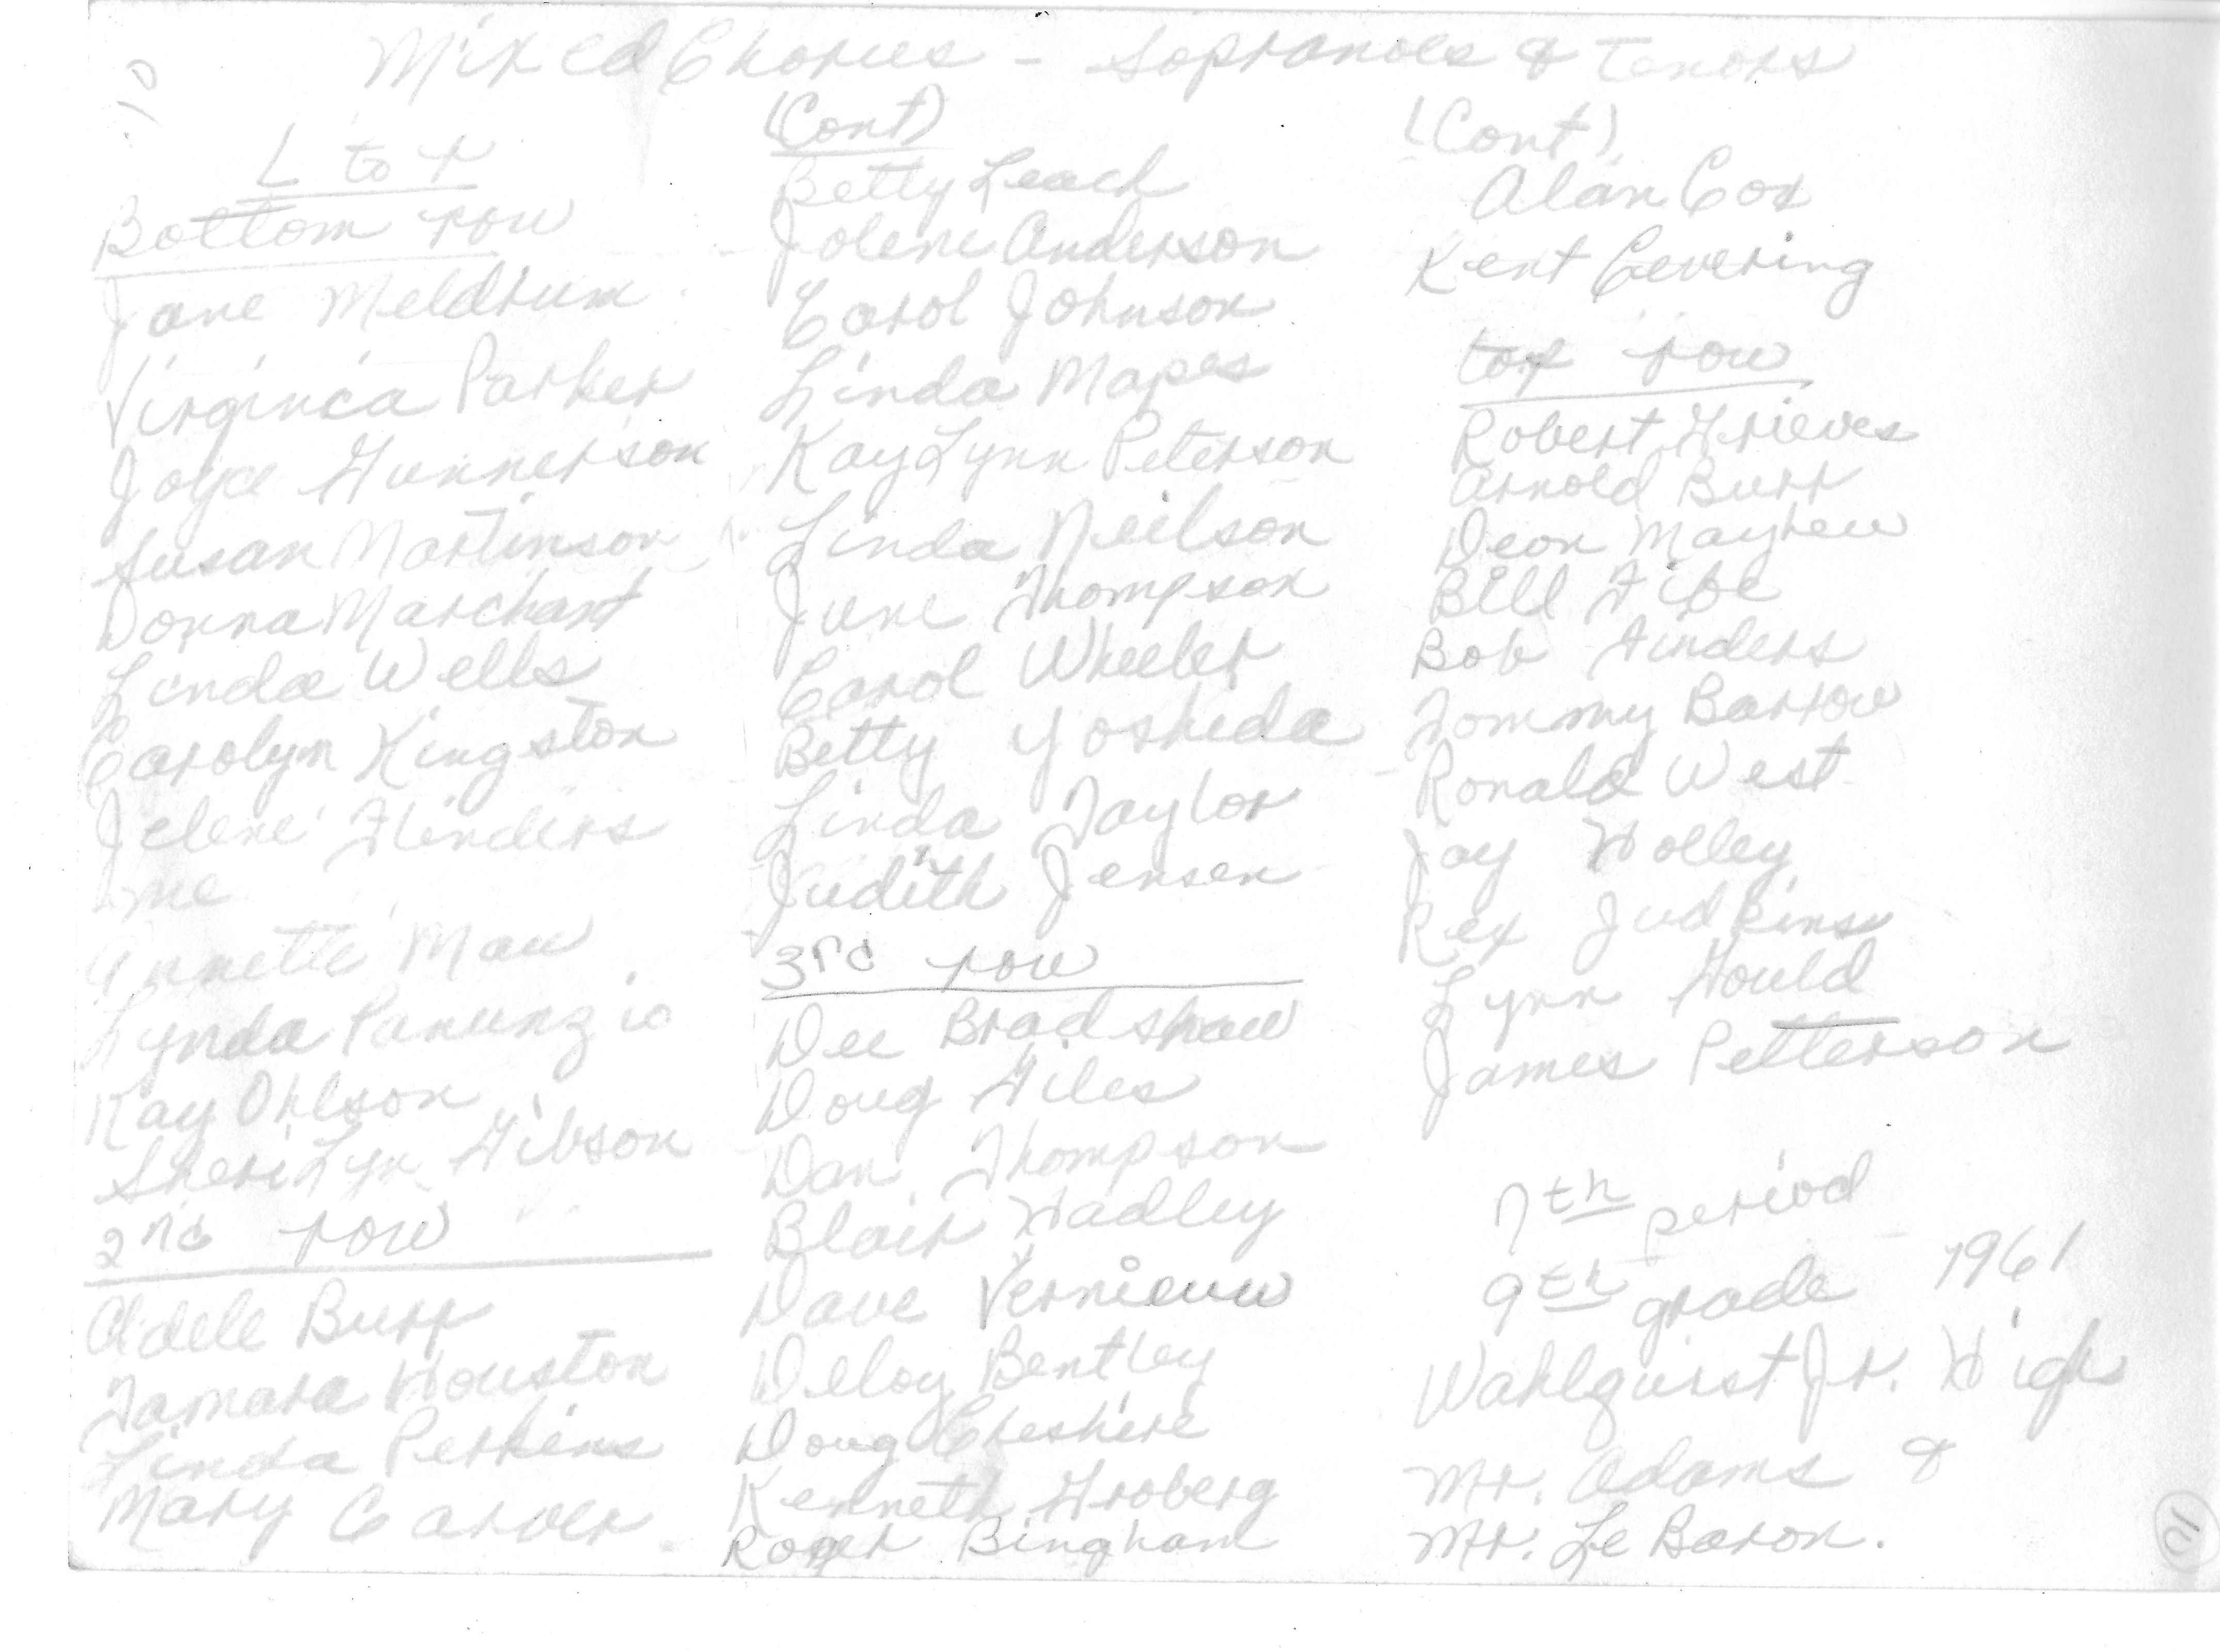 Mixed Chorus - Sopranoes & Tenors
10
L to r
Bottom row
Jane Meldrum
Virginia Parker
Joyce Gunnerson
Susan Martinson
Donna Marchant
Linda Wells
Carolyn Kingston
Jelene Flinders
me
Annette Maw
Lynda Panunzio
Kay Ohlson
Sheri Lyn Gibson
2nd row
Adele Burr
Tamara Houston
Linda Perkins
Mary Carver
(Cont)
Betty Leach
Jolene Anderson
Carol Johnson
Linda Mapes
Kay Lynn Peterson
Linda Neilson
June Thompson
Carol Wheeler
Betty Yoshida
Linda Taylor
Judith Jensen
3rd row
Dee Bradshaw
Doug Giles
Dan Thompson
Blair Hadley
Dave Vernieuw
Deloy Bentley
Doug Cheshire
Kenneth Groberg
Roger Bingham
(Cont)
Alan Cox
Kent Gevering
top row
Robert Grieves
Arnold Burr
Deon Mayhew
Bill Fife
Bob Finders
Tommy Barrow
Ronald West
Jay Holley
Rex Judkins
Lynn Gould
James Petterson
7th period
9th grade 1961
Wahlquist Jr. High
Mr. Adams &
Mr. Le Baron.
10